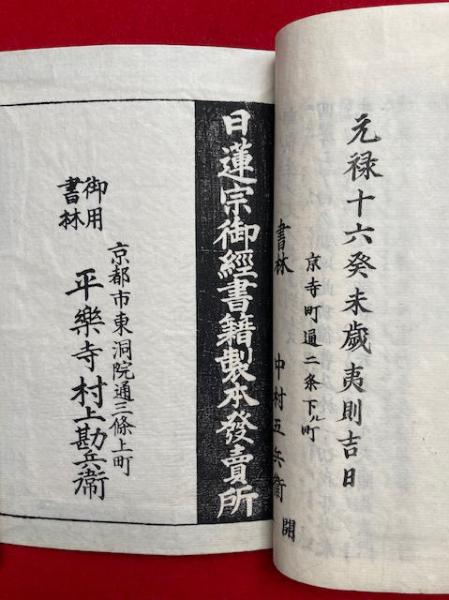 元禄十六癸未歳夷則吉日
京寺町通二条下ル町
書林 中村五兵衛 開
日蓮宗御經書籍製本發賣所
京都市東洞院通三條上町
御用書林
平樂寺村上勘兵衛